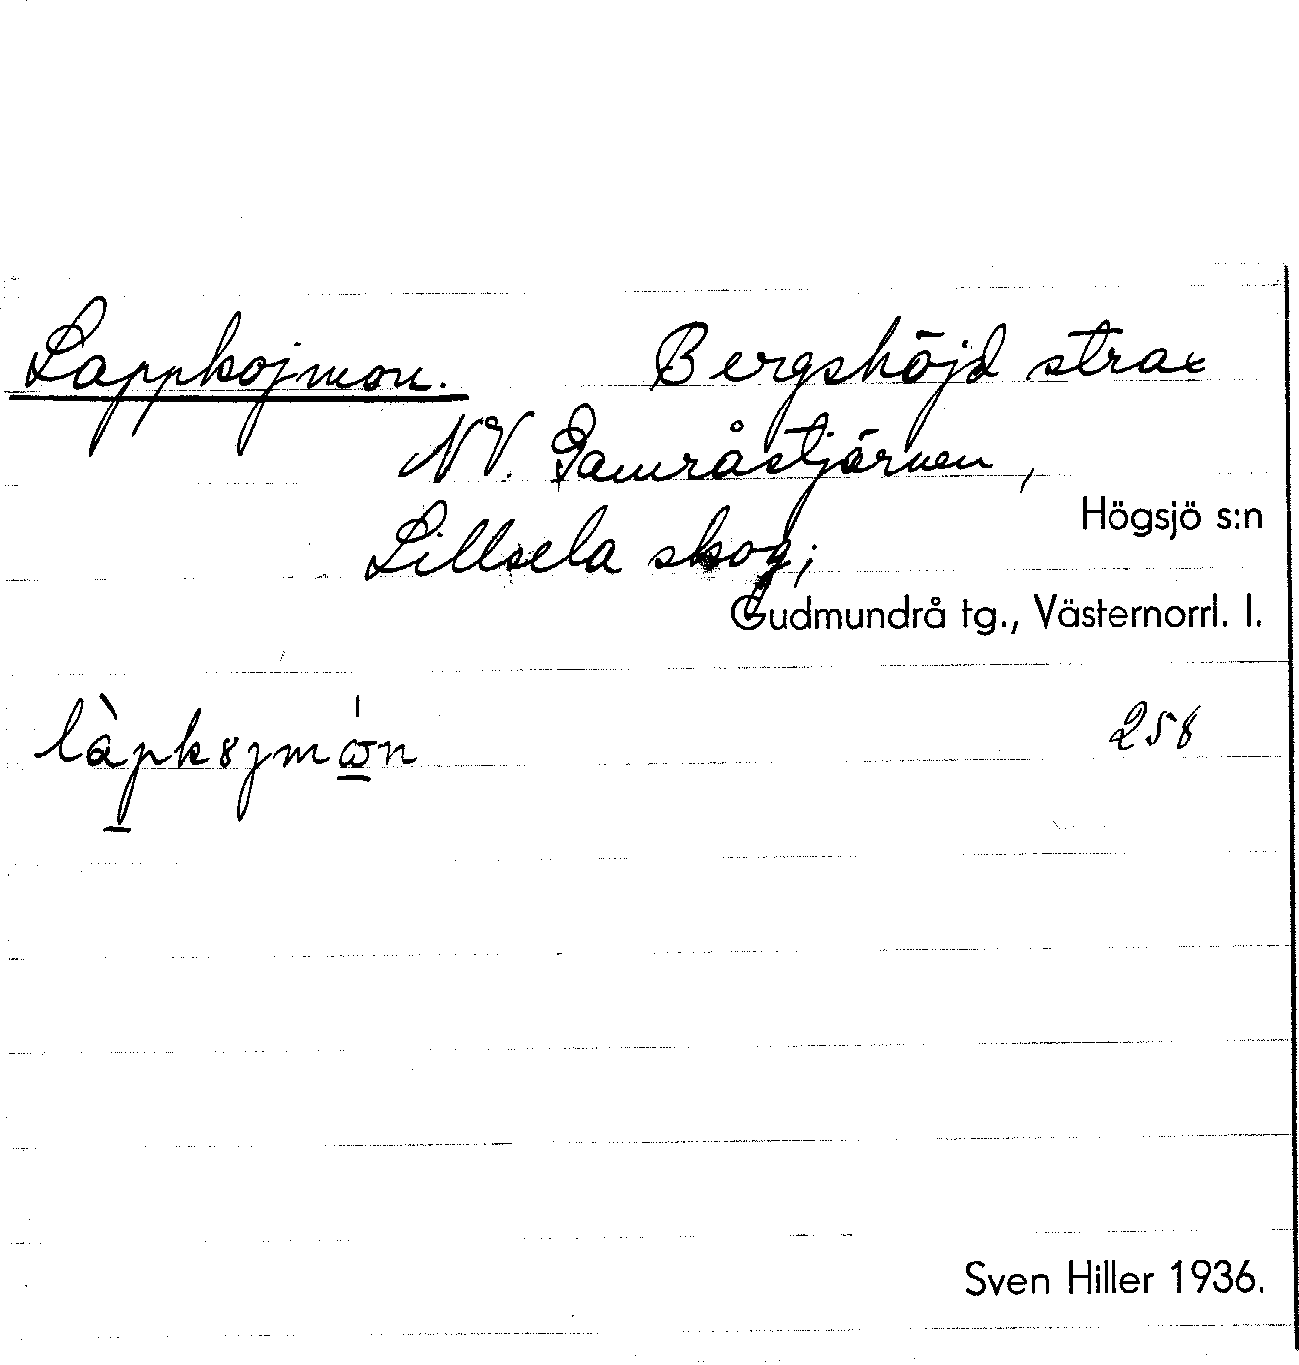 Lappkojmon. Bergshöjd strax
NV. Damråstjärnen,
Högsjö s:n
Lillsela skog;
Gudmundrå tg., Västernorrl. l.
258
Sven Hiller 1936.